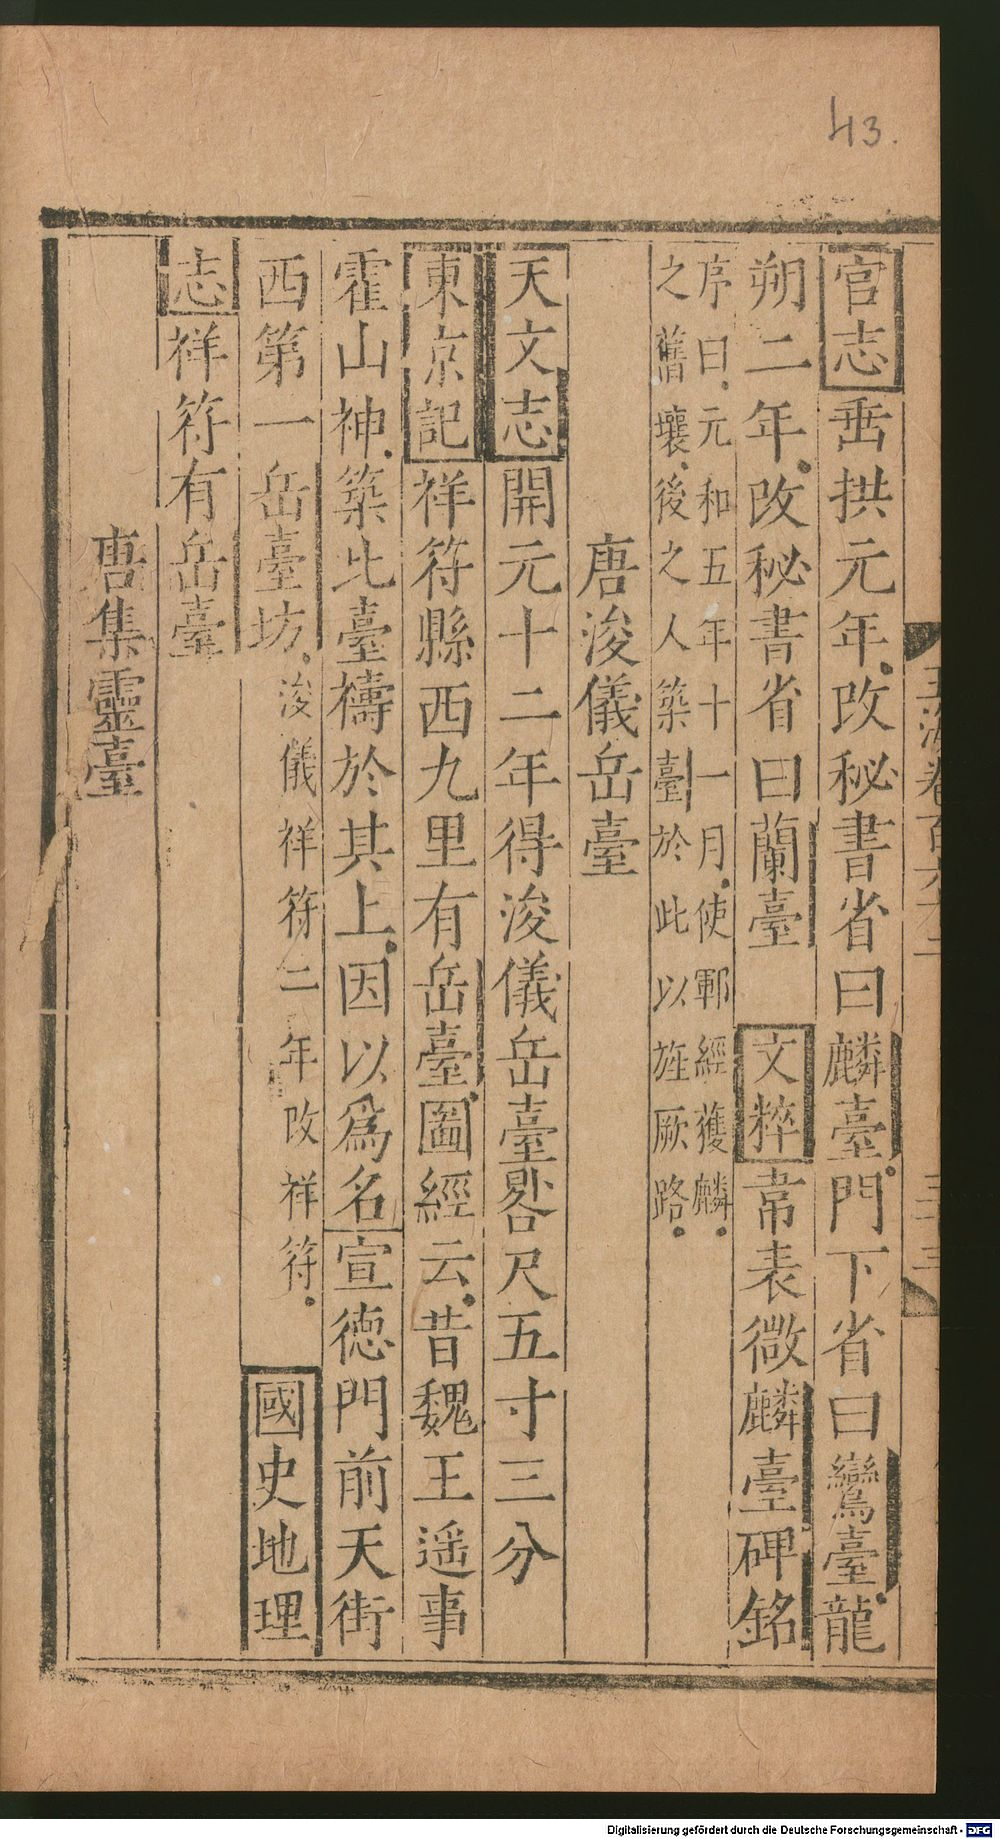 43.
官志垂拱元年改秘書省曰麟臺門下省曰鸞臺龍
朔二年改秘書省曰蘭臺 文粹韋表微麟臺碑銘
序曰元和五年十一月使鄆經獲麟
之舊壤後之人築臺於此以旌厥路
唐浚儀岳臺
天文志開元十二年得浚儀岳臺晷尺五寸三分
東京記祥符縣西九里有岳臺圖經云昔魏王遥事
霍山神築此臺禱於其上因以為名宣德門前天街
西第一岳臺坊浚儀祥符二年改祥符 國史地理
志祥符有岳臺
唐集靈臺
玉海卷百六十二
三十三
Digitalisierung gefördert durch die Deutsche Forschungsgemeinschaft - DFG